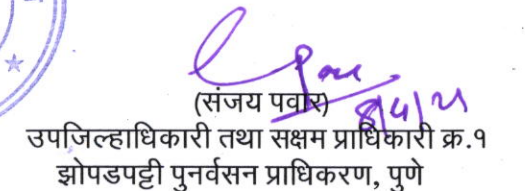 (संजय पवार)
8/4/21
उपजिल्हाधिकारी तथा सक्षम प्राधिकारी क्र.१
झोपडपट्टी पुनर्वसन प्राधिकरण, पुणे